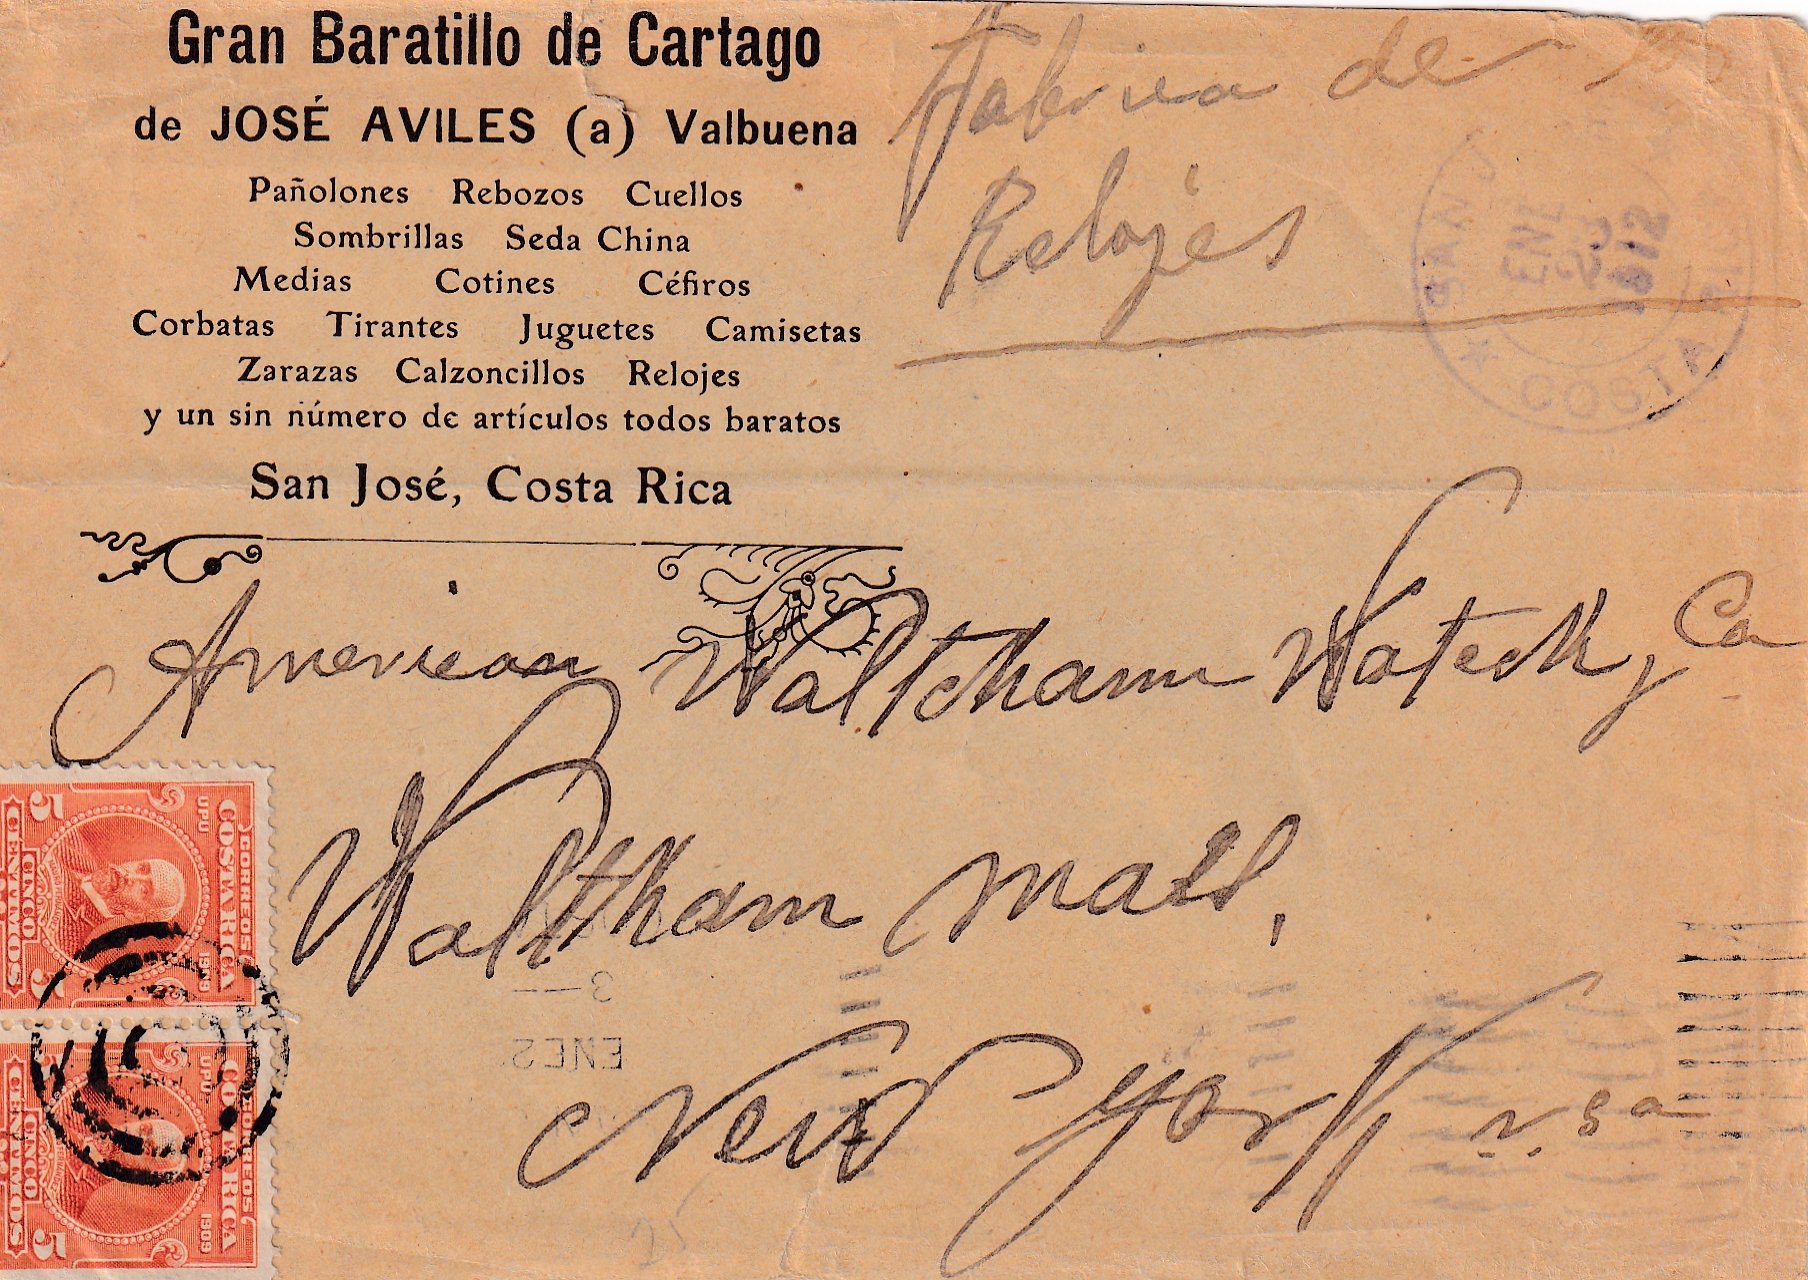 Gran Baratillo de Cartago
de JOSÉ AVILES (a) Valbuena
Pañolones Rebozos Cuellos
Sombrillas Seda China
Medias Cotines Céfiros
Corbatas Tirantes Juguetes Camisetas
Zarazas Calzoncillos Relojes
y un sin número de artículos todos baratos
San José, Costa Rica
Fabrica de
Relojes
SAN J
ENE
23
1912
COSTA RICA
American Waltham Watch y Ca
Waltham Mass,
New York
CORREOS
COSTA RICA
UPU 1909
5 5
CINCO
CENTIMOS
CORREOS
COSTA RICA
UPU 1909
5
CINCO
CENTIMOS
3—
ENE2